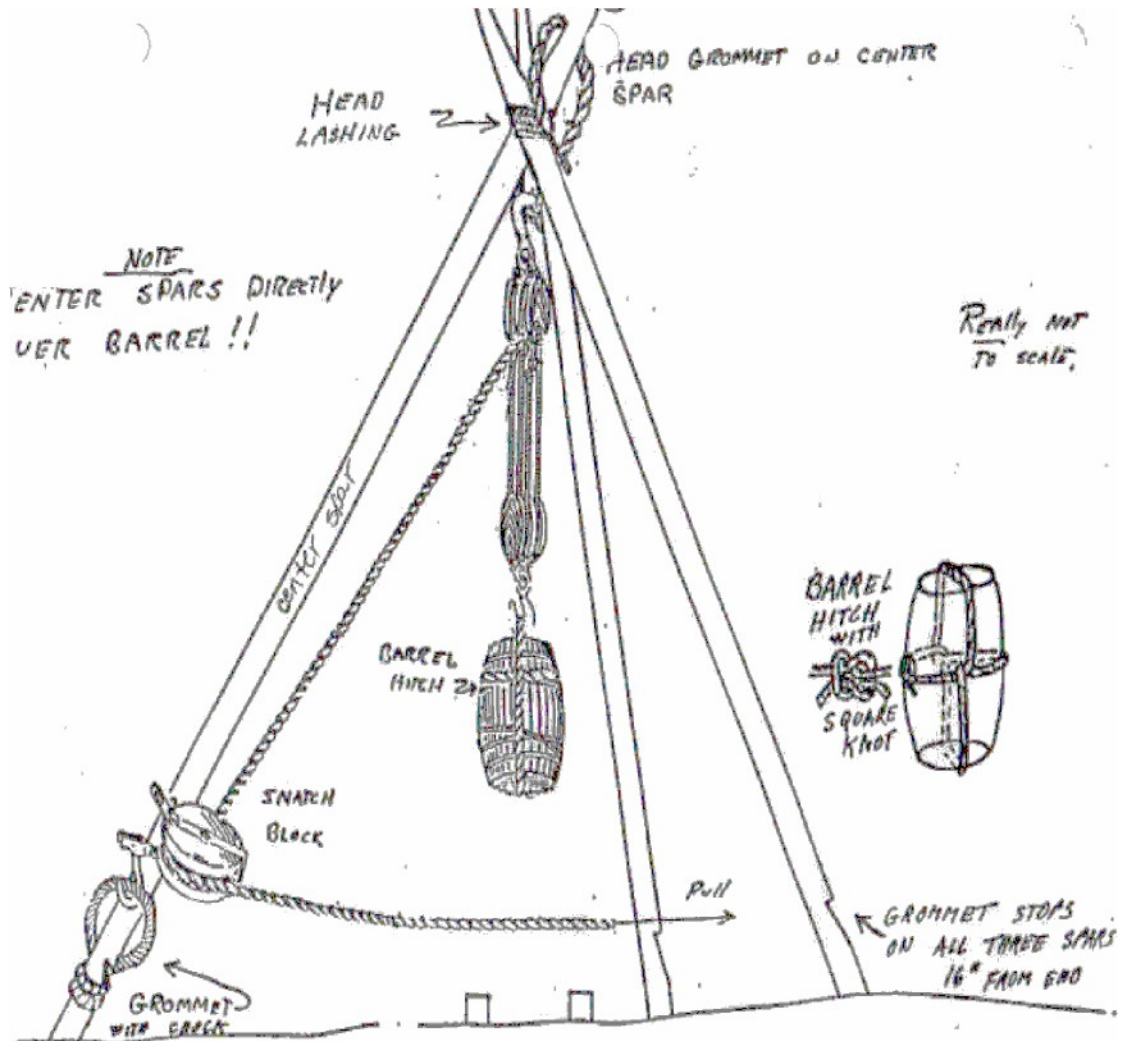 HEAD GROMMET ON CENTER
SPAR
HEAD
LASHING
NOTE
ENTER SPARS DIRECTLY
VER BARREL!!
Really NOT
TO SCALE.
center spar
BARREL
HITCH
BARREL
HITCH
WITH
SQUARE
KNOT
SNATCH
BLOCK
Pull
GROMMET STOPS
ON ALL THREE SPARS
16" FROM END
GROMMET
WITH